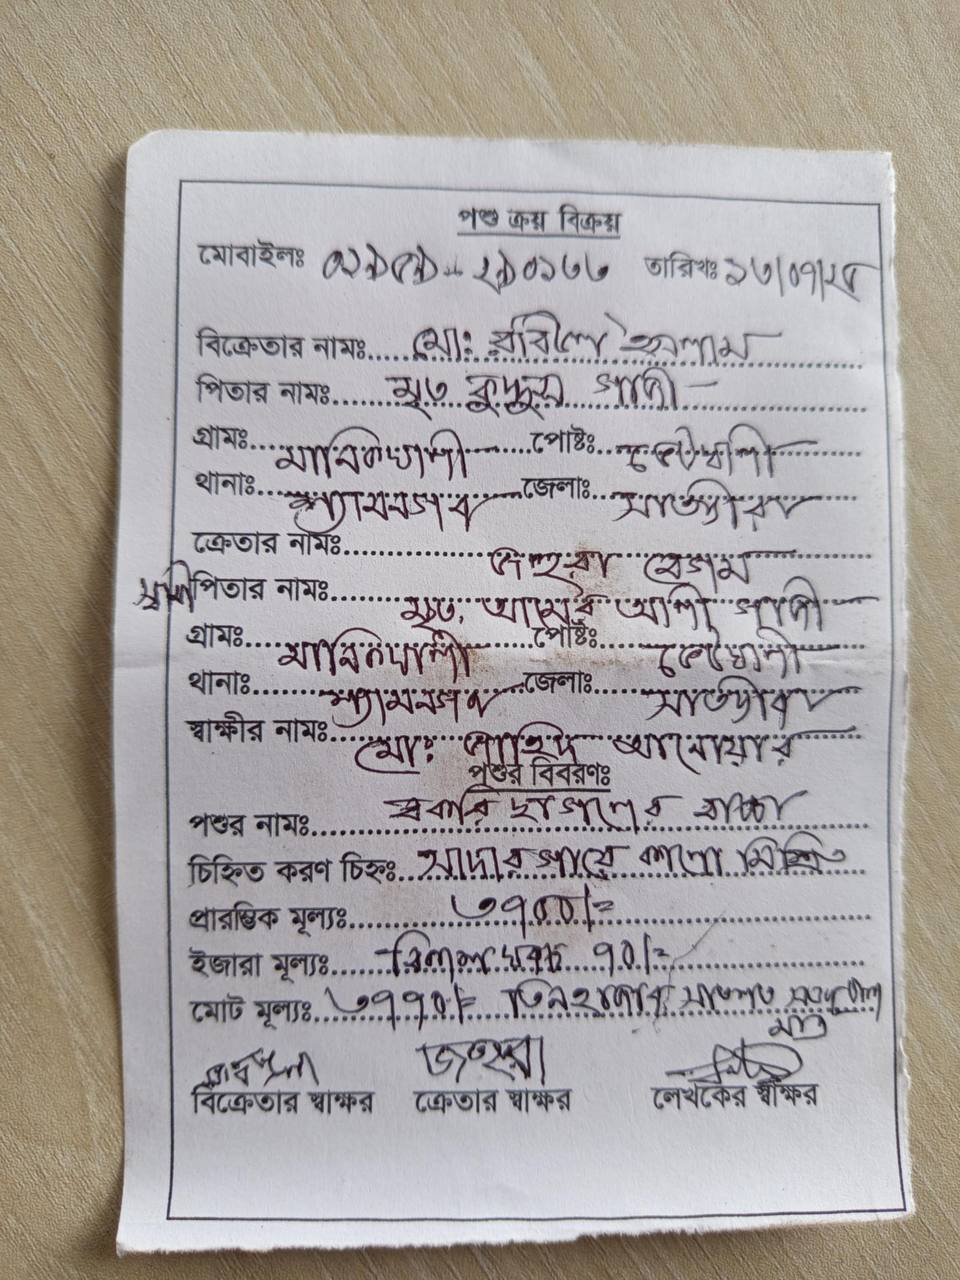 পশু ক্রয় বিক্রয়
মোবাইলঃ তারিখঃ ১৩/০৭/২৫
বিক্রেতার নামঃ মো: রবিউল ইসলাম
পিতার নামঃ মৃত কুদ্দুস গাজী
গ্রামঃ মানিকখালী পোষ্টঃ
থানাঃ শ্যামনগর জেলাঃ সাতক্ষীরা
ক্রেতার নামঃ জহুরা বেগম
স্বামী পিতার নামঃ মৃত. আলী গাজী
গ্রামঃ মানিকখালী পোষ্টঃ
থানাঃ শ্যামনগর জেলাঃ সাতক্ষীরা
স্বাক্ষীর নামঃ মো: আনোয়ার
পশুর বিবরণঃ
পশুর নামঃ ছাগলের বাচ্চা
চিহ্নিত করণ চিহ্নঃ সাদার কালো মিশ্রিত
প্রারম্ভিক মূল্যঃ ৩৭০০/=
ইজারা মূল্যঃ ৭০/=
মোট মূল্যঃ ৩৭৭০/= তিনহাজার সাতশত
মাত্র
জহুরা
বিক্রেতার স্বাক্ষর ক্রেতার স্বাক্ষর লেখকের স্বাক্ষর